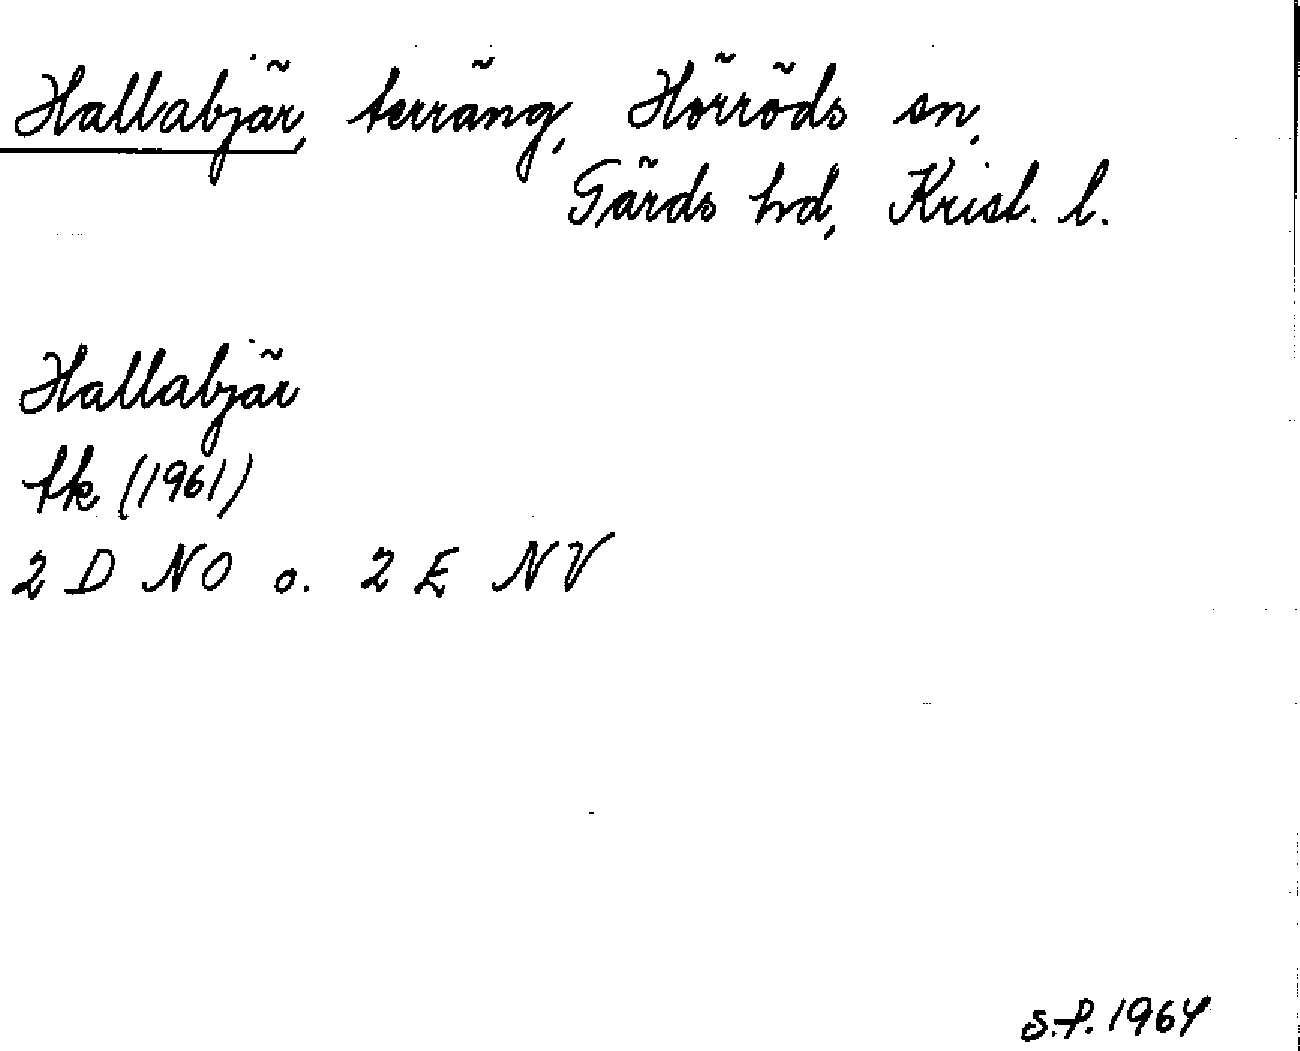 Hallabjär, terräng, Hörröds sn,
Gärds hd, Krist. l.
Hallabjär
tk (1961)
2 D NO o. 2 E NV
S.P. 1964